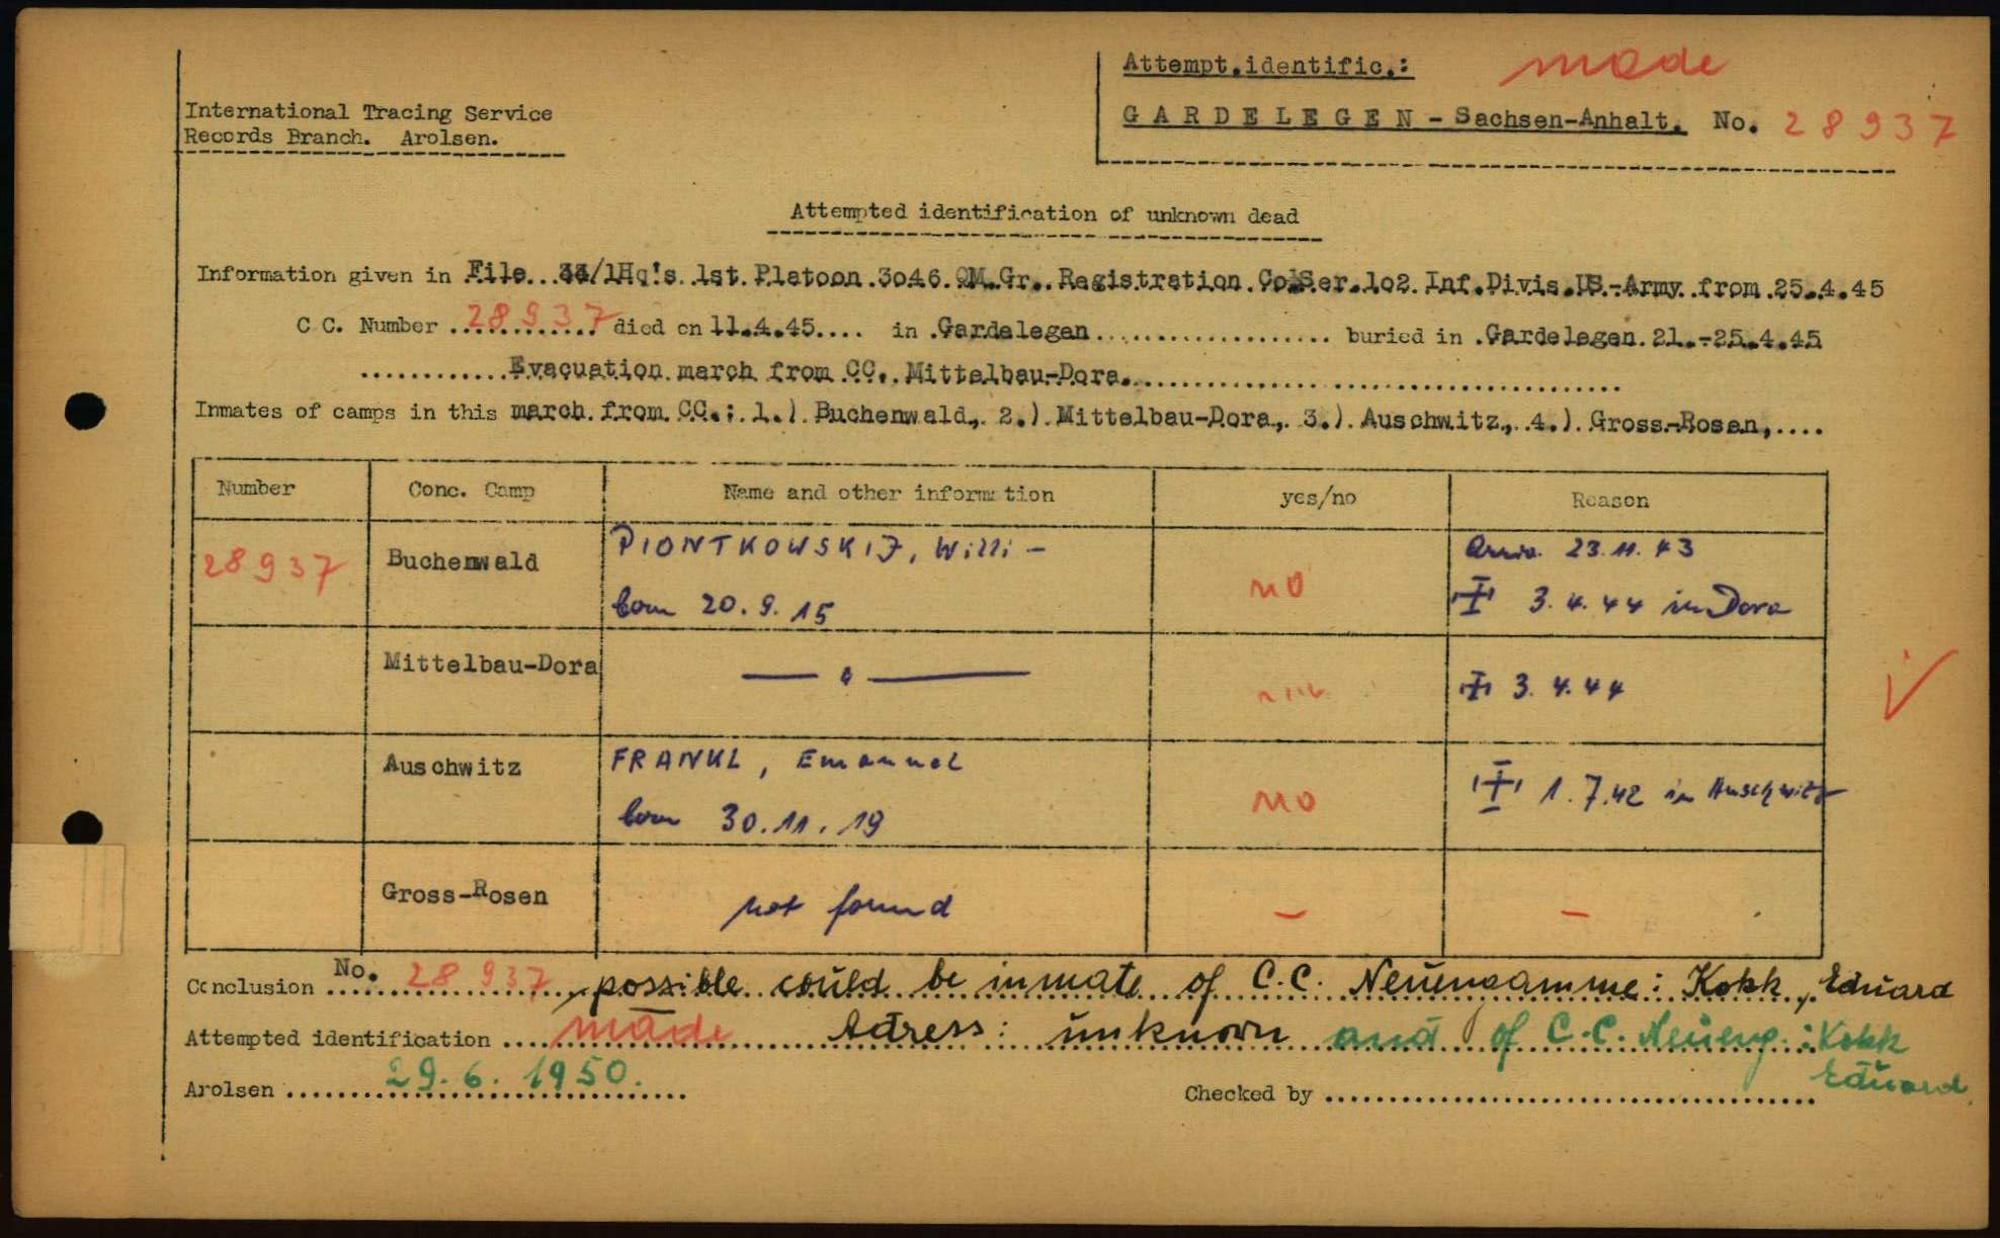 Attempt.identific.: made
International Tracing Service
Records Branch. Arolsen.
GARDELEGEN - Sachsen-Anhalt. No. 28937
Attempted identification of unknown dead
Information given in File...33/1Hq's.1st.Platoon.3o46.QM.Gr..Registration.Co.Ser.1o2.Inf.Divis.US.-Army.from.25.4.45
C C. Number ..28937.. died on 11.4.45.... in .Gardelegen.................... buried in .Gardelegen.21.-25.4.45
............Evacuation march from CC. Mittelbau-Dora..........................................
Inmates of camps in this march.from.CC.: 1.).Buchenwald,.2.).Mittelbau-Dora,.3.).Auschwitz,.4.).Gross-Rosen,....
Number Conc. Camp Name and other information yes/no Reason
28937 Buchenwald PIONTKOWSKIJ, Willi - no 23.11.43
born 20.9.15 3.4.44 in Dora
Mittelbau-Dora 3.4.44
Auschwitz FRANKL, Emanuel no 1.7.42 in Auschwitz
born 30.11.19
Gross-Rosen not found - -
Conclusion No. 28937 possible could be inmate of C.C. Neuengamme: Kokk, Eduard
Attempted identification ... made Adress: unknown and of C.C. Neueng.: Kokk
Eduard.
Arolsen 29.6.1950.
Checked by ........................................